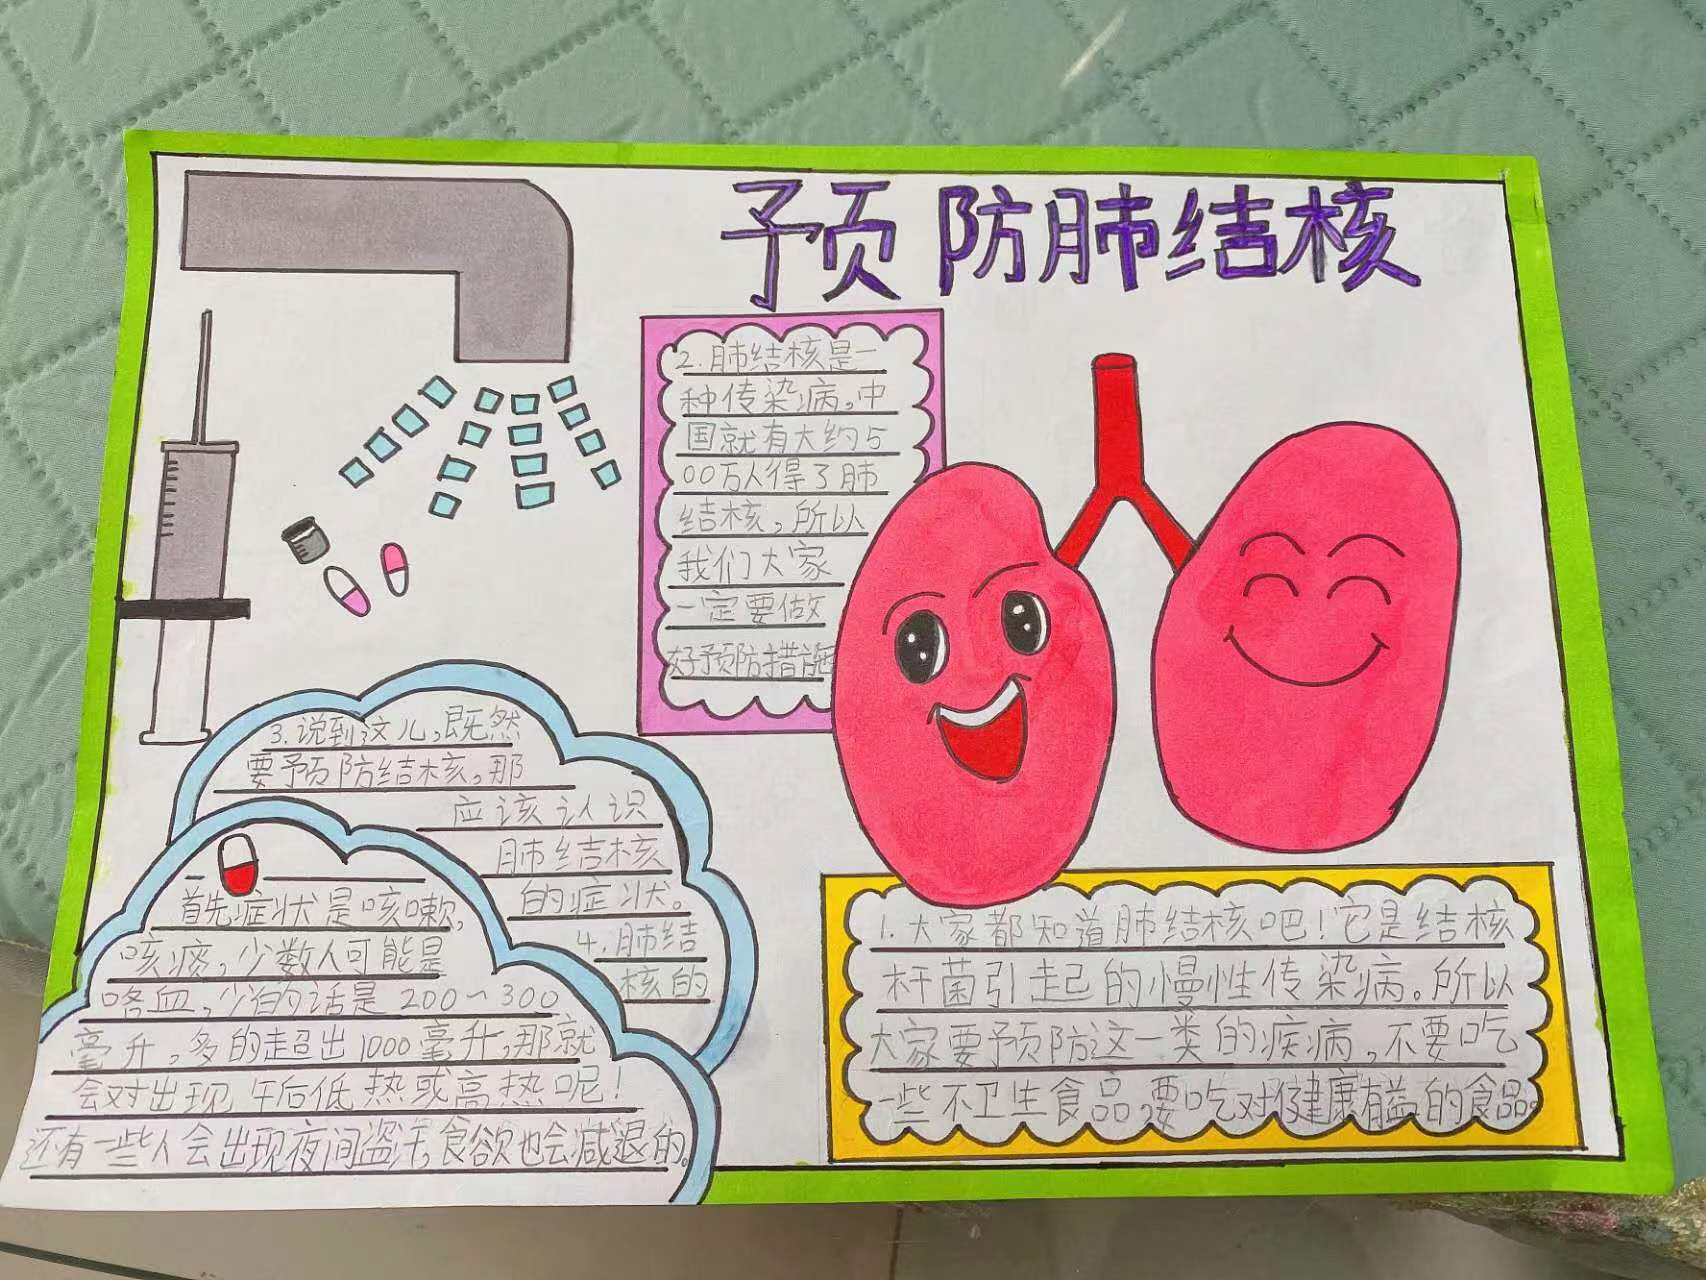 预防肺结核
2.肺结核是一
种传染病。中
国就有大约5
00万人得了肺
结核，所以
我们大家
一定要做
好预防措施
1.大家都知道肺结核吧！它是结核
杆菌引起的慢性传染病。所以
大家要预防这一类的疾病，不要吃
一些不卫生食品，要吃对健康有益的食品。
3.说到这儿，既然
要预防结核，那
应该认识
肺结核
的症状。
4.肺结
核的
首先症状是咳嗽，
咳痰，少数人可能是
咯血，少的话是200~300
毫升，多的超出1000毫升，那就
会对出现午后低热或高热呢！
还有一些人会出现夜间盗汗，食欲也会减退的。